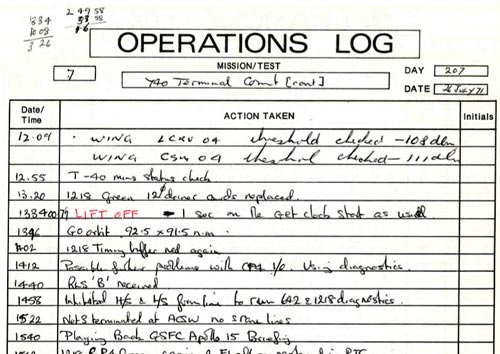 2 49 58
1334
1008
3 26
OPERATIONS LOG
MISSION/TEST
7
Y40 Terminal Count [cont]
DAY 207
DATE 26 July 71
Date/Time
ACTION TAKEN
Initials
12.09 . WING LCRU 04 threshold checked -108 dbm
WING CSM 04 threshold checked -111 dbm
12.55 T-40 mins status check
13.20 1218 Green 12 driver cards replaced.
133400 LIFT OFF 1 sec on the GET clock start as usual
1346 Go orbit 92.5 x 91.5 n.m.
1402 1218 Timing buffer red again
1412 Possible further problems with I/O. Using diagnostics.
1440 RLS 'B' received
1458 Inhibited H/S & L/S from line to run 642 & 1218 diagnostics.
1522 Net 3 terminated at ACSW no spare lines
1540 Playing Back GSFC Apollo 15 Briefing